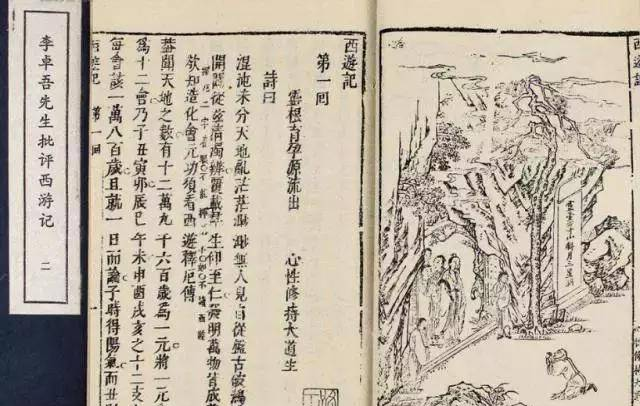 李卓吾先生批评西游记 二
西遊記
西遊記
第一回
靈根育孕源流出 心性修持大道生
詩曰
混沌未分天地亂茫茫渺渺無人見自從盤古破鴻
開闢從茲清濁辨覆載羣生仰至仁發明萬物皆成
欲知造化會元功須看西遊釋厄傳
釋厄二字着眼不能釋厄不如不讀西遊
蓋聞天地之數有十二萬九千六百歲為一元將一元
為十二會乃子丑寅卯辰巳午未申酉戌亥之十二支
每會該一萬八百歲且就一日而論子時得陽氣而丑
西遊記 第一回
靈臺方寸山斜月三星洞